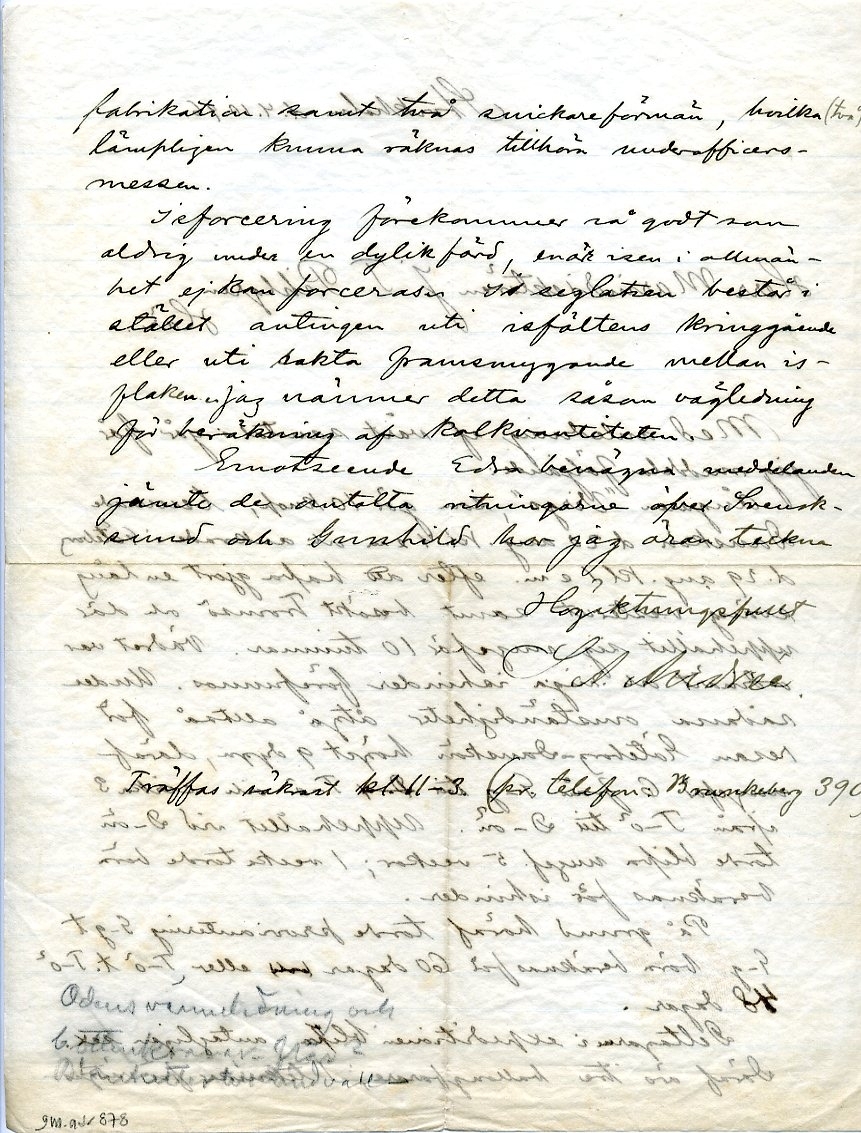 fabrikation samt två snickareförmän, hvilka (två)
lämpligen kunna räknas tillhöra underofficers-
messen.
Isforcering förekommer så godt som
aldrig under en dylik färd, enär isen i allmän-
het ej kan forceras. Isseglatsen består i
stället antingen uti isfältens kringgående
eller uti sakta framsmygande mellan is-
flaken. Jag nämner detta såsom vägledning
för beräkning af kolkvantiteten.
Emotseende Edra benägna meddelanden
jämte de omtalta ritningarne öfver Svensk-
sund och Gunhild har jag äran teckna
Högaktningsfullt
S. A. Andrée.
Träffas säkrast kl. 11-3 (pr telefon: Brunkeberg 390
Odens värmeledning och
gm.a.s. 878